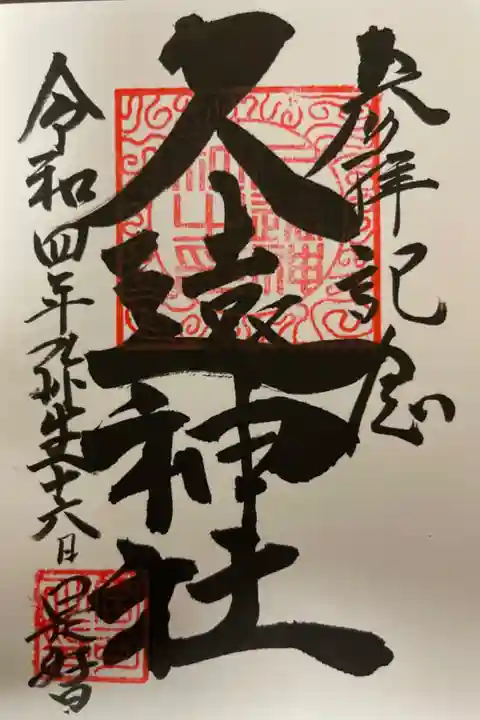 参拝記念
久遠神社
令和四年弥生十六日